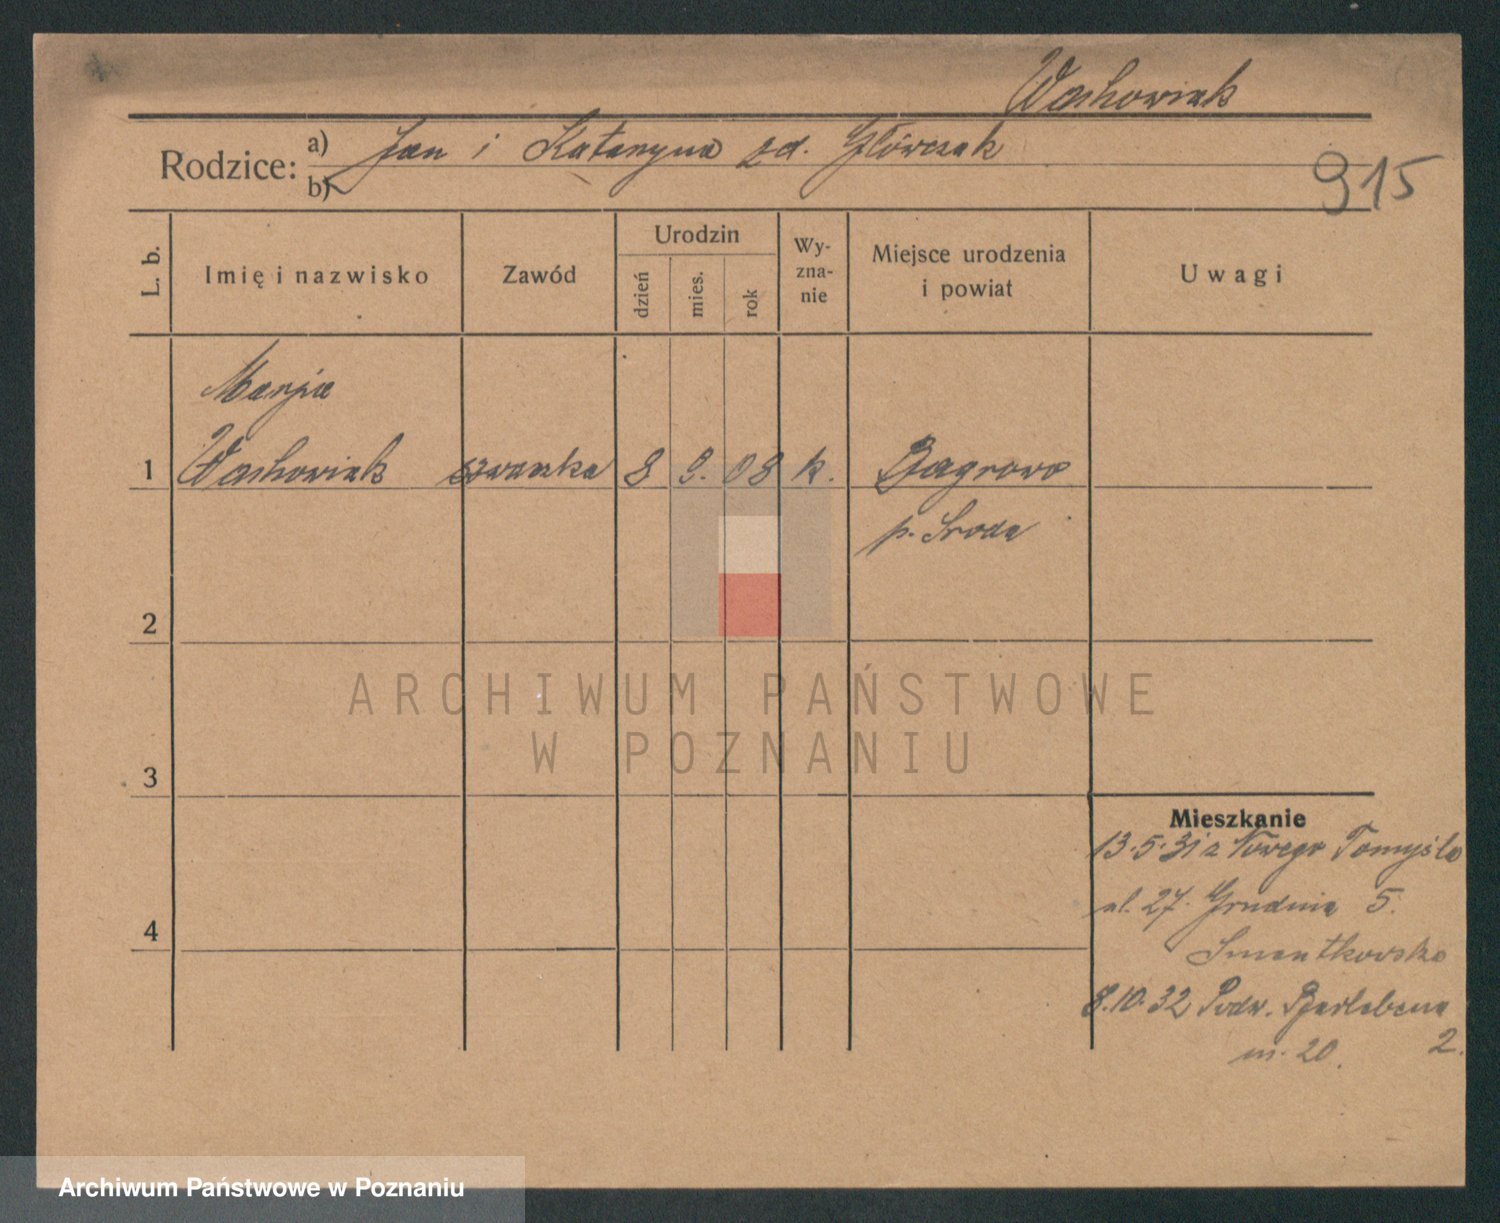 Wachowiak
Rodzice: a) Jan i Katarzyna zd. Główczak
b)
915
L. b. Imię i nazwisko Zawód Urodzin dzień mies. rok Wy-zna-nie Miejsce urodzenia i powiat Uwagi
Marja
1 Wachowiak 8 9. 08 k. Bagrowo
p. Sroda
2
ARCHIWUM PAŃSTWOWE
W POZNANIU
3
Mieszkanie
13.5.31 z Nowego Tomyśla
ul. 27. Grudnia 5.
4
8.10.32 Podw.
2.
m. 20.
Archiwum Państwowe w Poznaniu